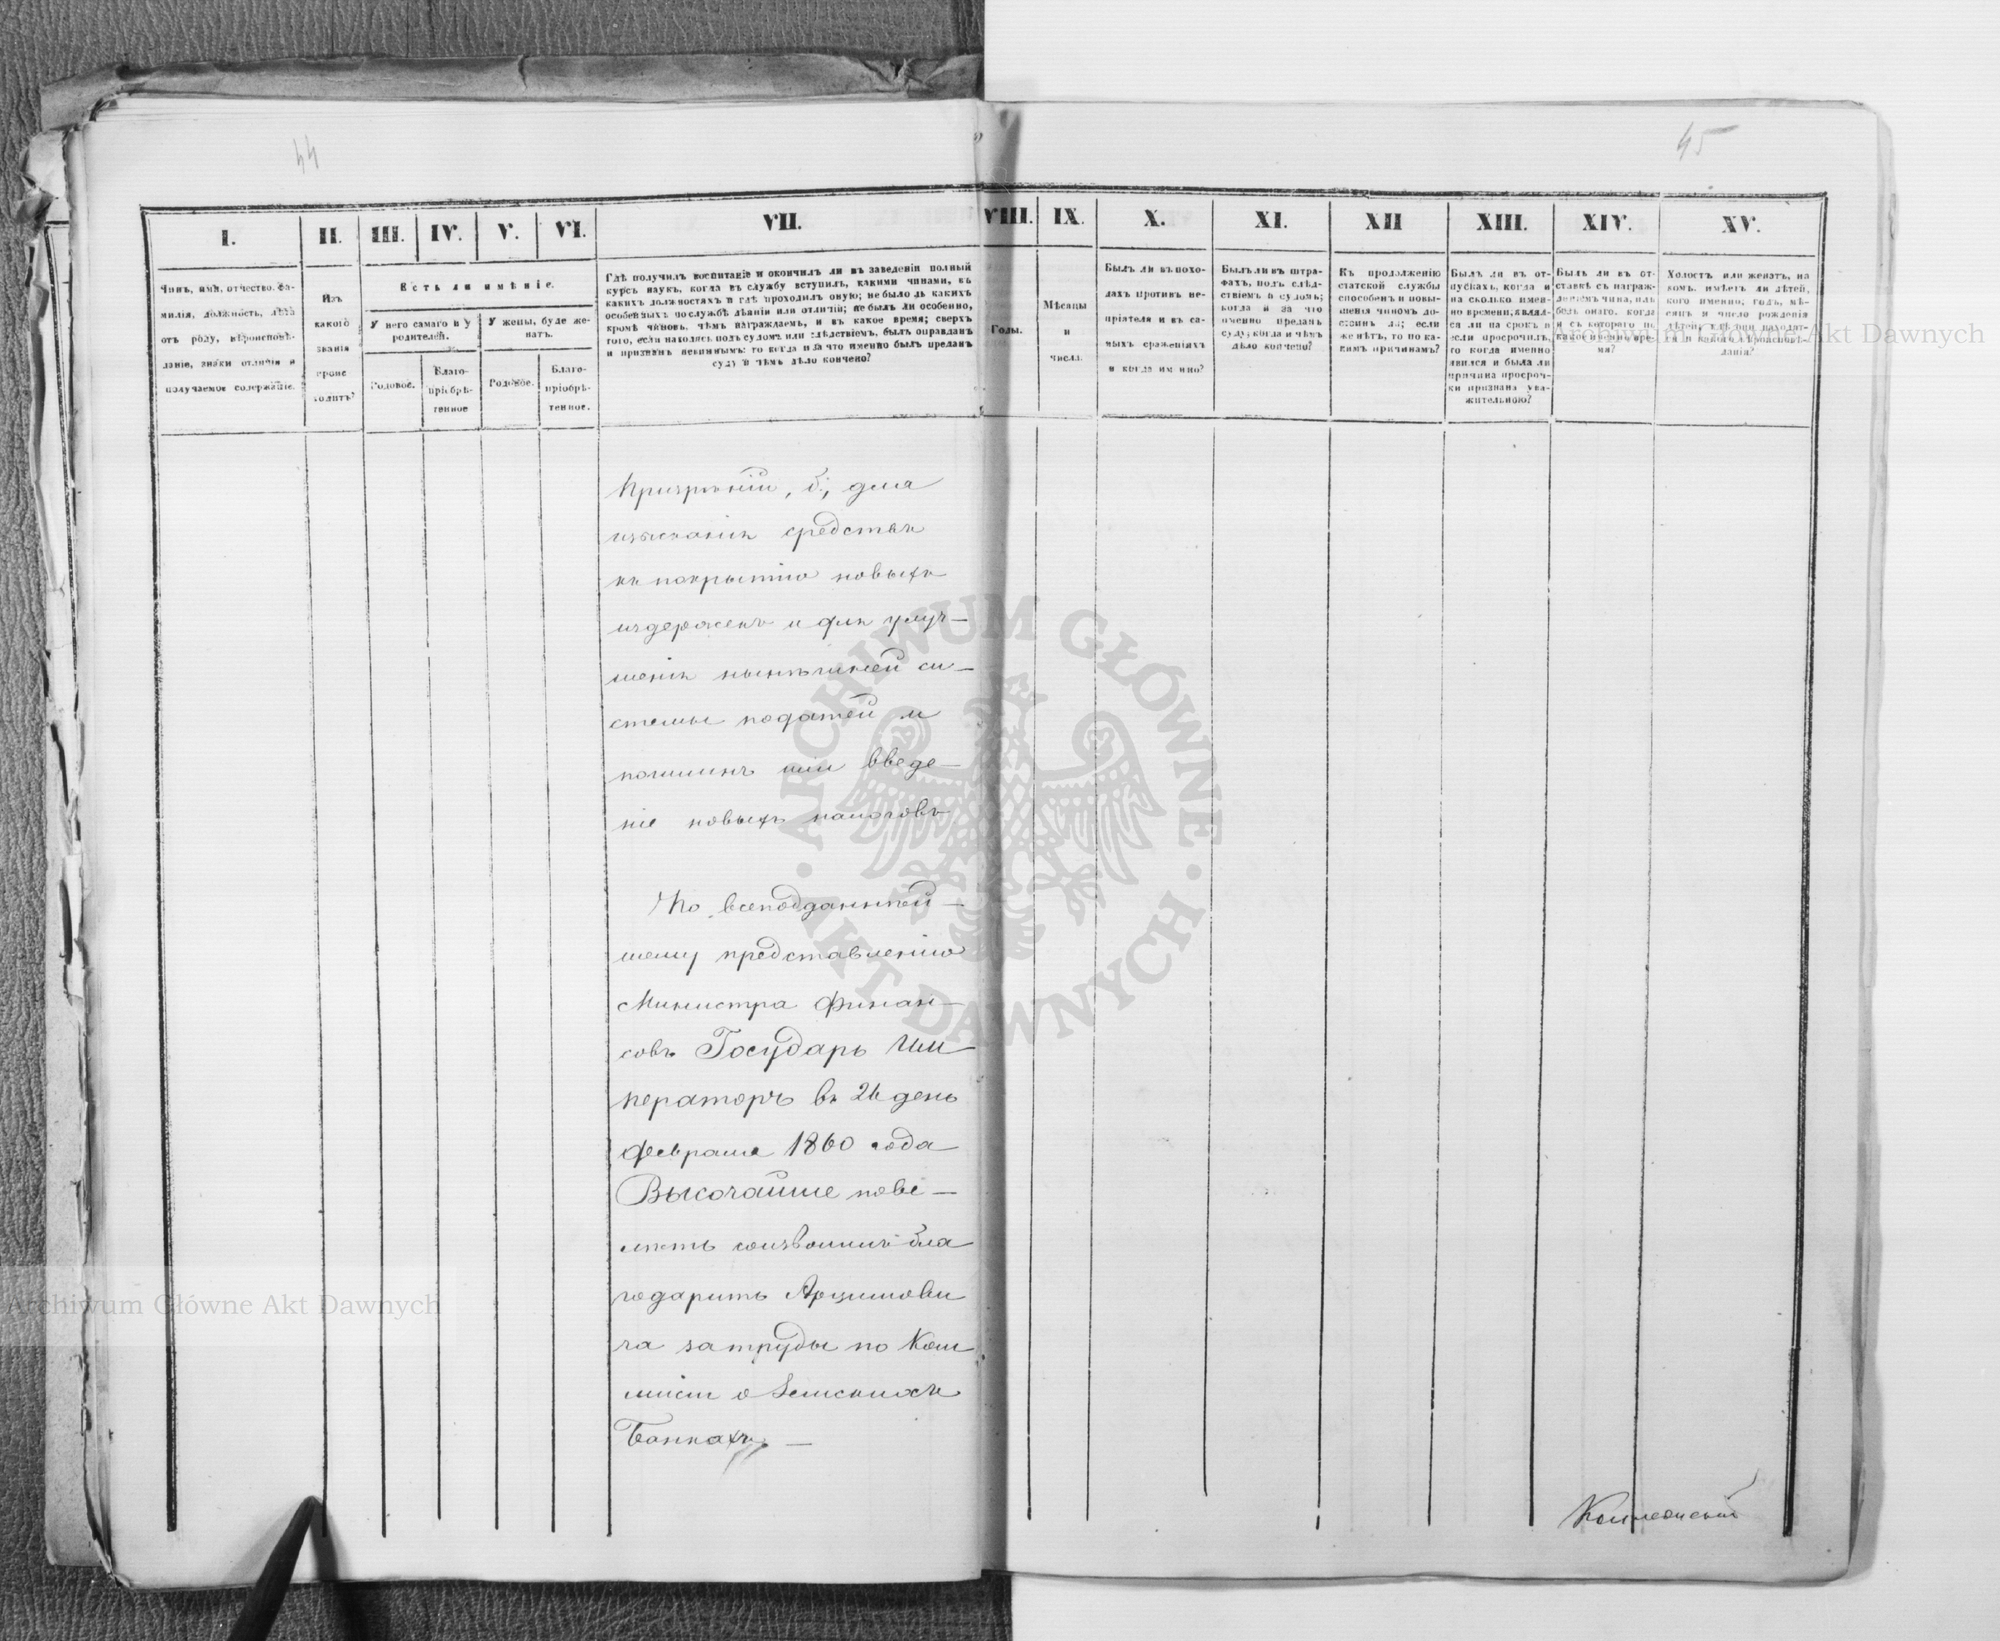 44
45
I.
II.
III.
IV.
V.
VI.
VII.
VIII.
IX.
X.
XI.
XII
XIII.
XIV.
XV.
Чинъ, имя, отчество, фа-
милія, должность, лѣта
отъ роду, вѣроисповѣ-
даніе, знаки отличія и
получаемое содержаніе.
Изъ
какого
званія
проис
ходитъ?
Есть ли имѣніе.
У него самаго и у
родителей.
У жены, буде же-
натъ.
Родовое.
Благо-
пріобрѣ-
тенное
Родовое.
Благо-
пріобрѣ-
тенное.
Гдѣ получилъ воспитаніе и окончилъ ли въ заведеніи полный
курсъ наукъ, когда въ службу вступилъ, какими чинами, въ
какихъ должностяхъ и гдѣ проходилъ оную; не было ль какихъ
особенныхъ по службѣ дѣяній или отличій; не былъ ли особенно,
кромѣ чиновъ, чѣмъ награждаемъ, и въ какое время; сверхъ
того, если находясь подъ судомъ или слѣдствіемъ, былъ оправданъ
и признанъ невиннымъ: то когда и за что именно былъ преданъ
суду и чѣмъ дѣло кончено?
Годы.
Мѣсяцы
и
числа.
Былъ ли въ похо-
дахъ противъ не-
пріятеля и въ са-
мыхъ сраженіяхъ
и когда им нно?
Былъ ли въ штра-
фахъ, подъ слѣд-
ствіемъ и судомъ;
когда и за что
именно преданъ
суду; когда и чѣмъ
дѣло кончено?
Къ продолженію
статской службы
способенъ и повы-
шенія чиномъ до-
стоинъ ли; если
же нѣтъ, то по ка-
кимъ причинамъ?
Былъ ли въ от-
пускахъ, когда и
на сколько имен-
но времени, являл-
ся ли на срокъ и
если просрочилъ,
то когда именно
явился и была ли
причина просроч-
ки признана ува-
жительною?
Былъ ли въ от-
ставкѣ съ награж-
деніемъ чина, иль
безъ онаго, когда
и съ котораго по
какое именно вре-
мя?
Холостъ или женатъ, на
комъ, имѣетъ ли дѣтей,
кого именно; годъ, мѣ-
сяцъ и число рожденія
дѣтей, гдѣ они находят-
ся и какого вѣроисповѣ-
данія?
Призрѣнія, б., для
изысканія средствъ
къ покрытію новыхъ
издержекъ и для улуч-
шенія нынѣшней си-
стемы податей и
пошлинъ или введе-
ніе новыхъ налоговъ
По всеподданнѣй-
шему представленію
Министра Финан-
совъ Государь Им
ператоръ въ 26 день
Февраля 1860 года
Высочайше пове-
лѣть соизволилъ бла
годарить Арцимови
ча за труды по Ком
мисіи о Земскихъ
Банкахъ. —
ARCHIWUM GŁÓWNE
AKT DAWNYCH
Archiwum Główne Akt Dawnych
Archiwum Główne Akt Dawnych